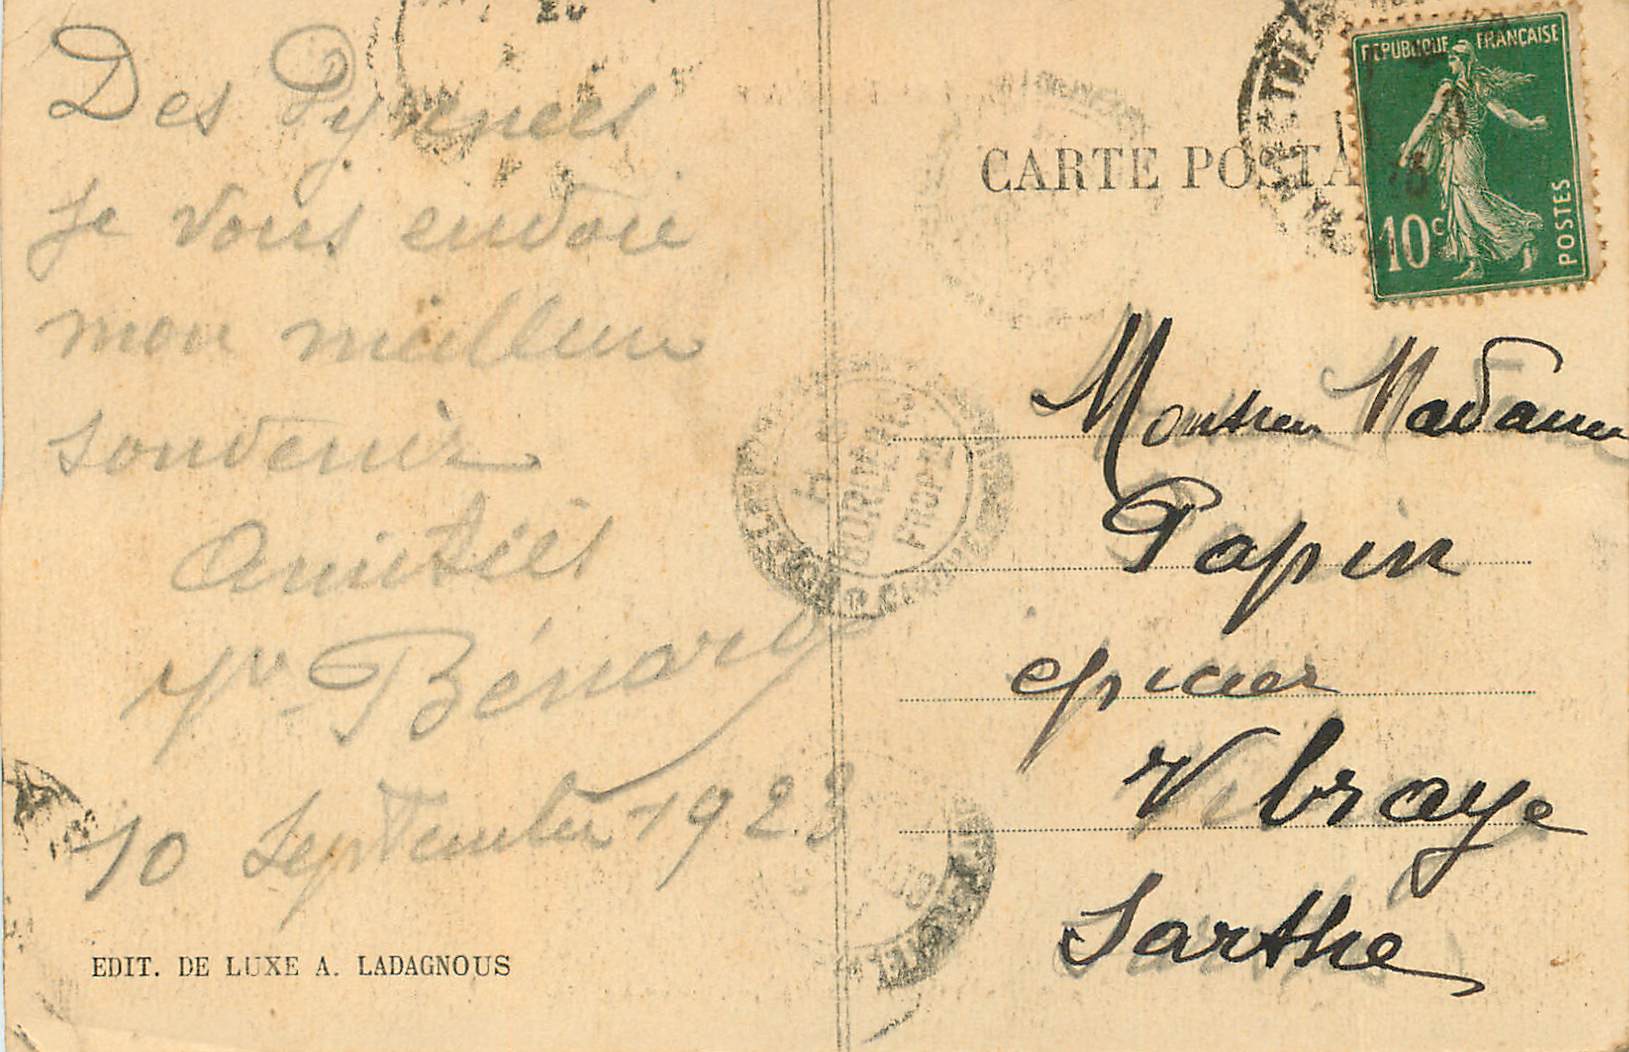 Des Pyrenees
Je vous envoie
mon meilleur
souvenir
Amitiés
Yv Bénard
10 Septembre 1923
EDIT. DE LUXE A. LADAGNOUS
CARTE POSTA
REPUBLIQUE FRANÇAISE
10c
POSTES
Monsieur Madame
Papin
epicier
Vibraye
Sarthe